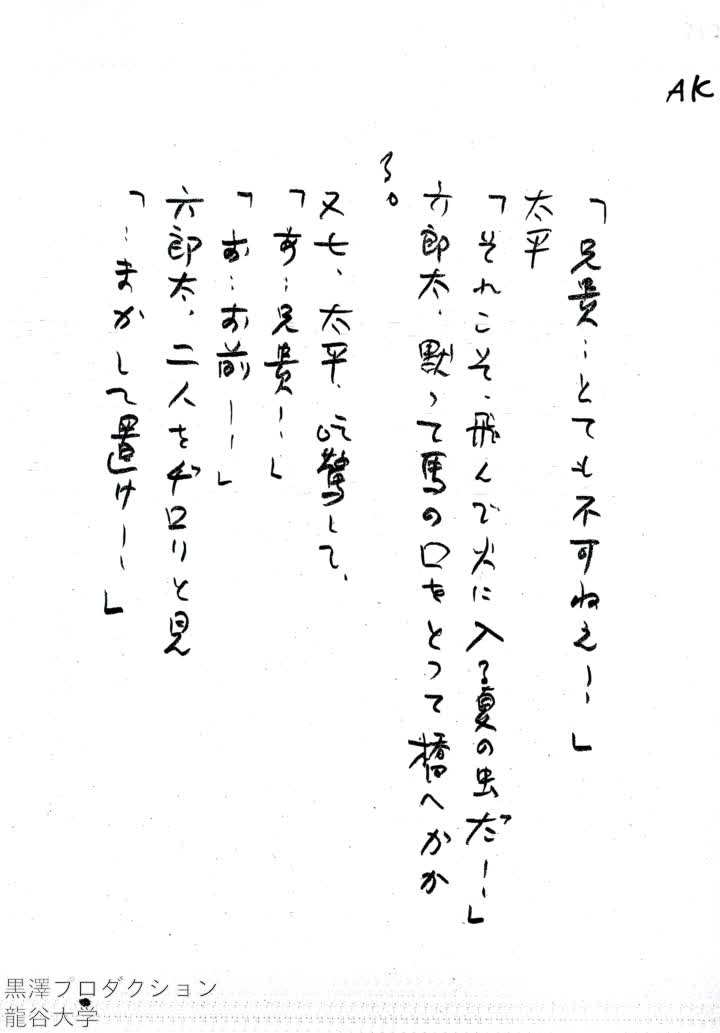 AK
「兄貴…とても不可ねえ!!」
太平
「それこそ、飛んで火に入る夏の虫だ!!」
六郎太、黙って馬の口をとって橋へかか
る。
又七、太平、吃驚して、
「あ…兄貴!!」
「お…お前!!」
六郎太、二人をヂロリと見
「…まかして置け!!」
黒澤プロダクション
龍谷大学